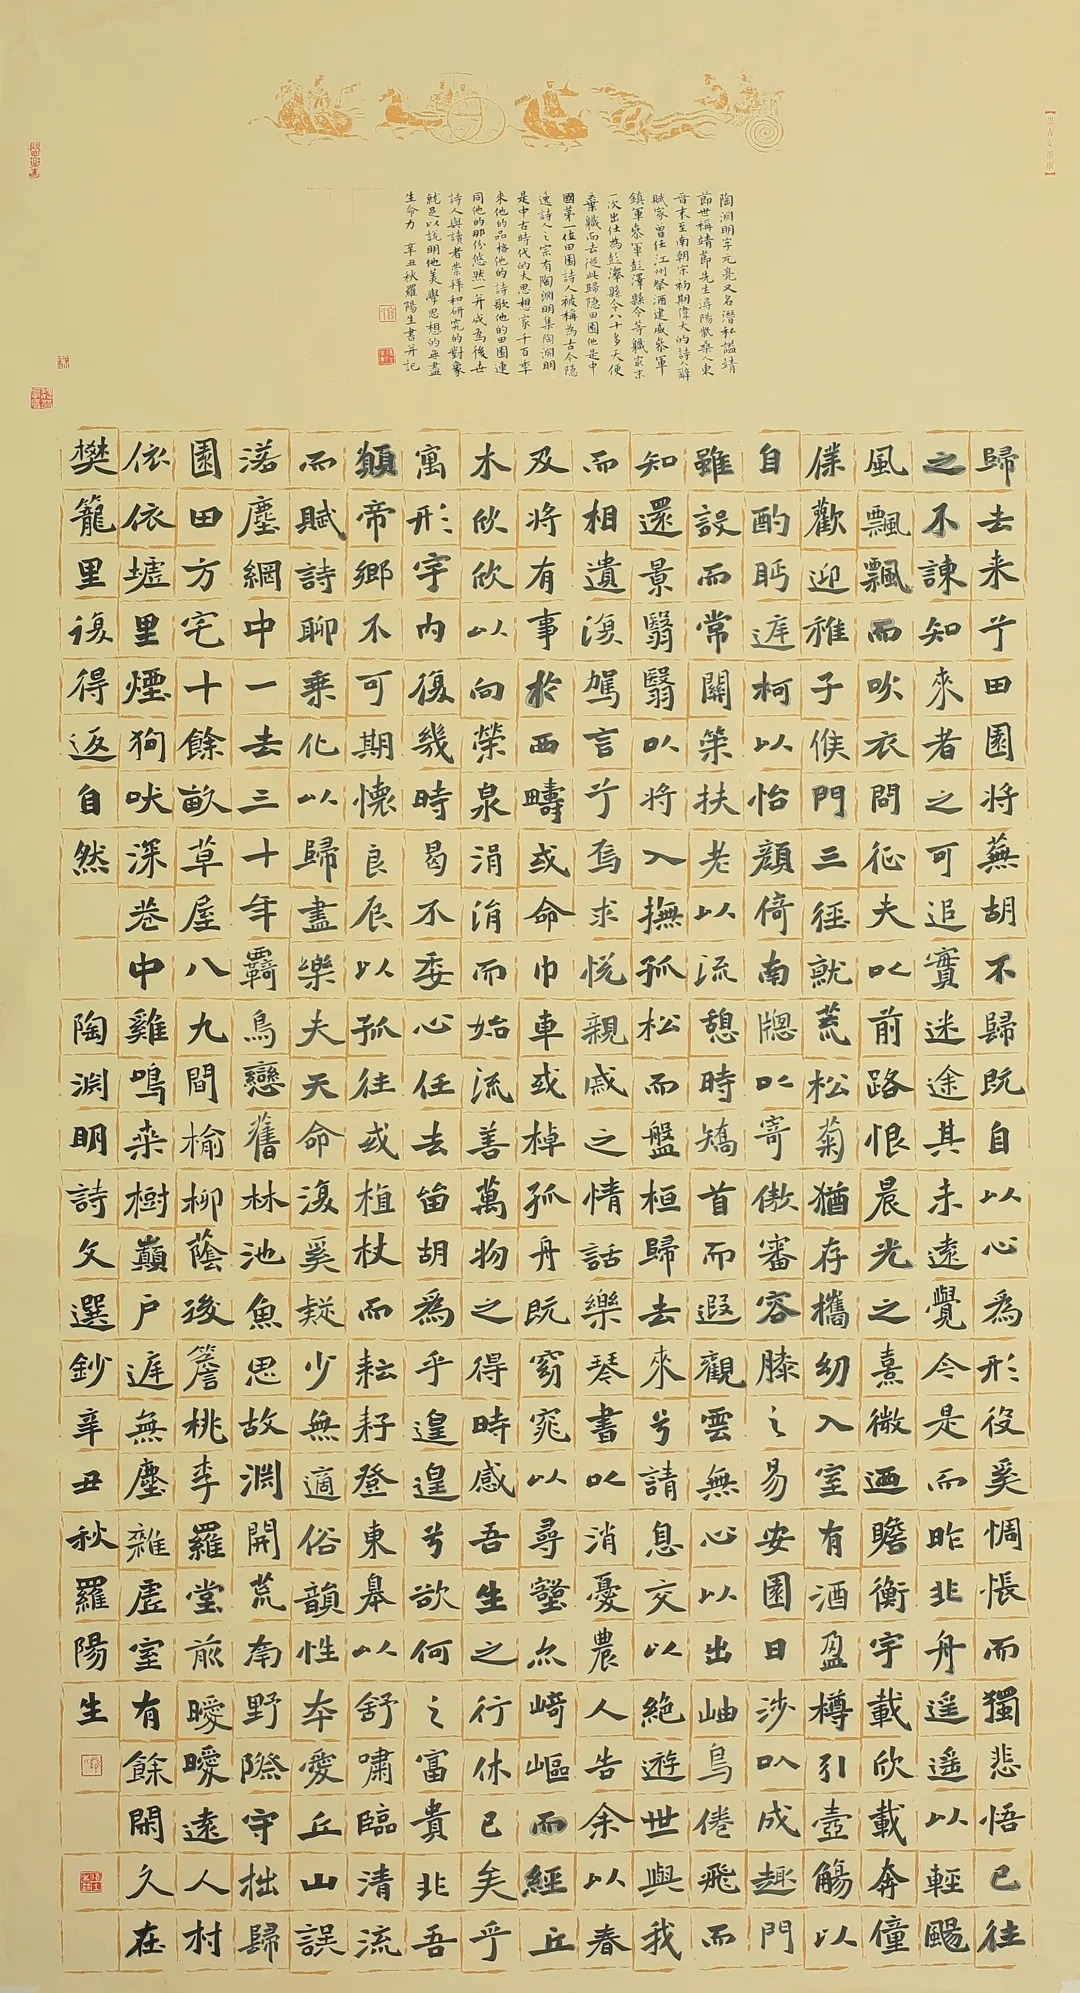 陶淵明字元亮又名潛私謚靖
節世稱靖節先生潯陽柴桑人東
晉末至南朝宋初期偉大的詩人辭
賦家曾任江州祭酒建威參軍
鎮軍參軍彭澤縣令等職家末
一次出仕為彭澤縣令八十多天便
棄職而去從此歸隱田園他是中
國第一位田園詩人被稱為古今隱
逸詩人之宗有陶淵明集陶淵明
是中古時代的大思想家千百年
来他的品格他的詩歌他的田園連
同他的那份悠然一并成為後世
詩人與讀者崇拜和研究的對象
就足以說明他美學思想的無盡
生命力 辛丑秋羅陽生書并記
歸去来兮田園将蕪胡不歸既自以心為形役奚惆悵而獨悲悟已往
之不諫知來者之可追實迷途其未遠覺今是而昨非舟遥遥以輕颺
風飄飄而吹衣問征夫以前路恨晨光之熹微迺瞻衡宇載欣載奔僮
僕歡迎稚子候門三徑就荒松菊猶存攜幼入室有酒盈樽引壺觴以
自酌眄庭柯以怡顔倚南牕以寄傲審容膝之易安園日涉以成趣門
雖設而常關策扶老以流憩時矯首而遐觀雲無心以出岫鳥倦飛而
知還景翳翳以将入撫孤松而盤桓歸去來兮請息交以絶遊世與我
而相遺復駕言兮焉求悦親戚之情話樂琴書以消憂農人告余以春
及将有事於西疇或命巾車或棹孤舟既窈窕以尋壑亦崎嶇而經丘
木欣欣以向榮泉涓涓而始流善萬物之得時感吾生之行休已矣乎
寓形宇内復幾時曷不委心任去留胡為乎遑遑兮欲何之富貴非吾
願帝鄉不可期懷良辰以孤往或植杖而耘耔登東皋以舒嘯臨清流
而賦詩聊乘化以歸盡樂夫天命復奚疑少無適俗韻性本愛丘山誤
落塵網中一去三十年羈鳥戀舊林池魚思故淵開荒南野際守拙歸
園田方宅十餘畝草屋八九間榆柳蔭後簷桃李羅堂前曖曖遠人村
依依墟里煙狗吠深巷中雞鳴桑樹巔户庭無塵雜虚室有餘閑久在
樊籠里復得返自然 陶淵明詩文選鈔辛丑秋羅陽生